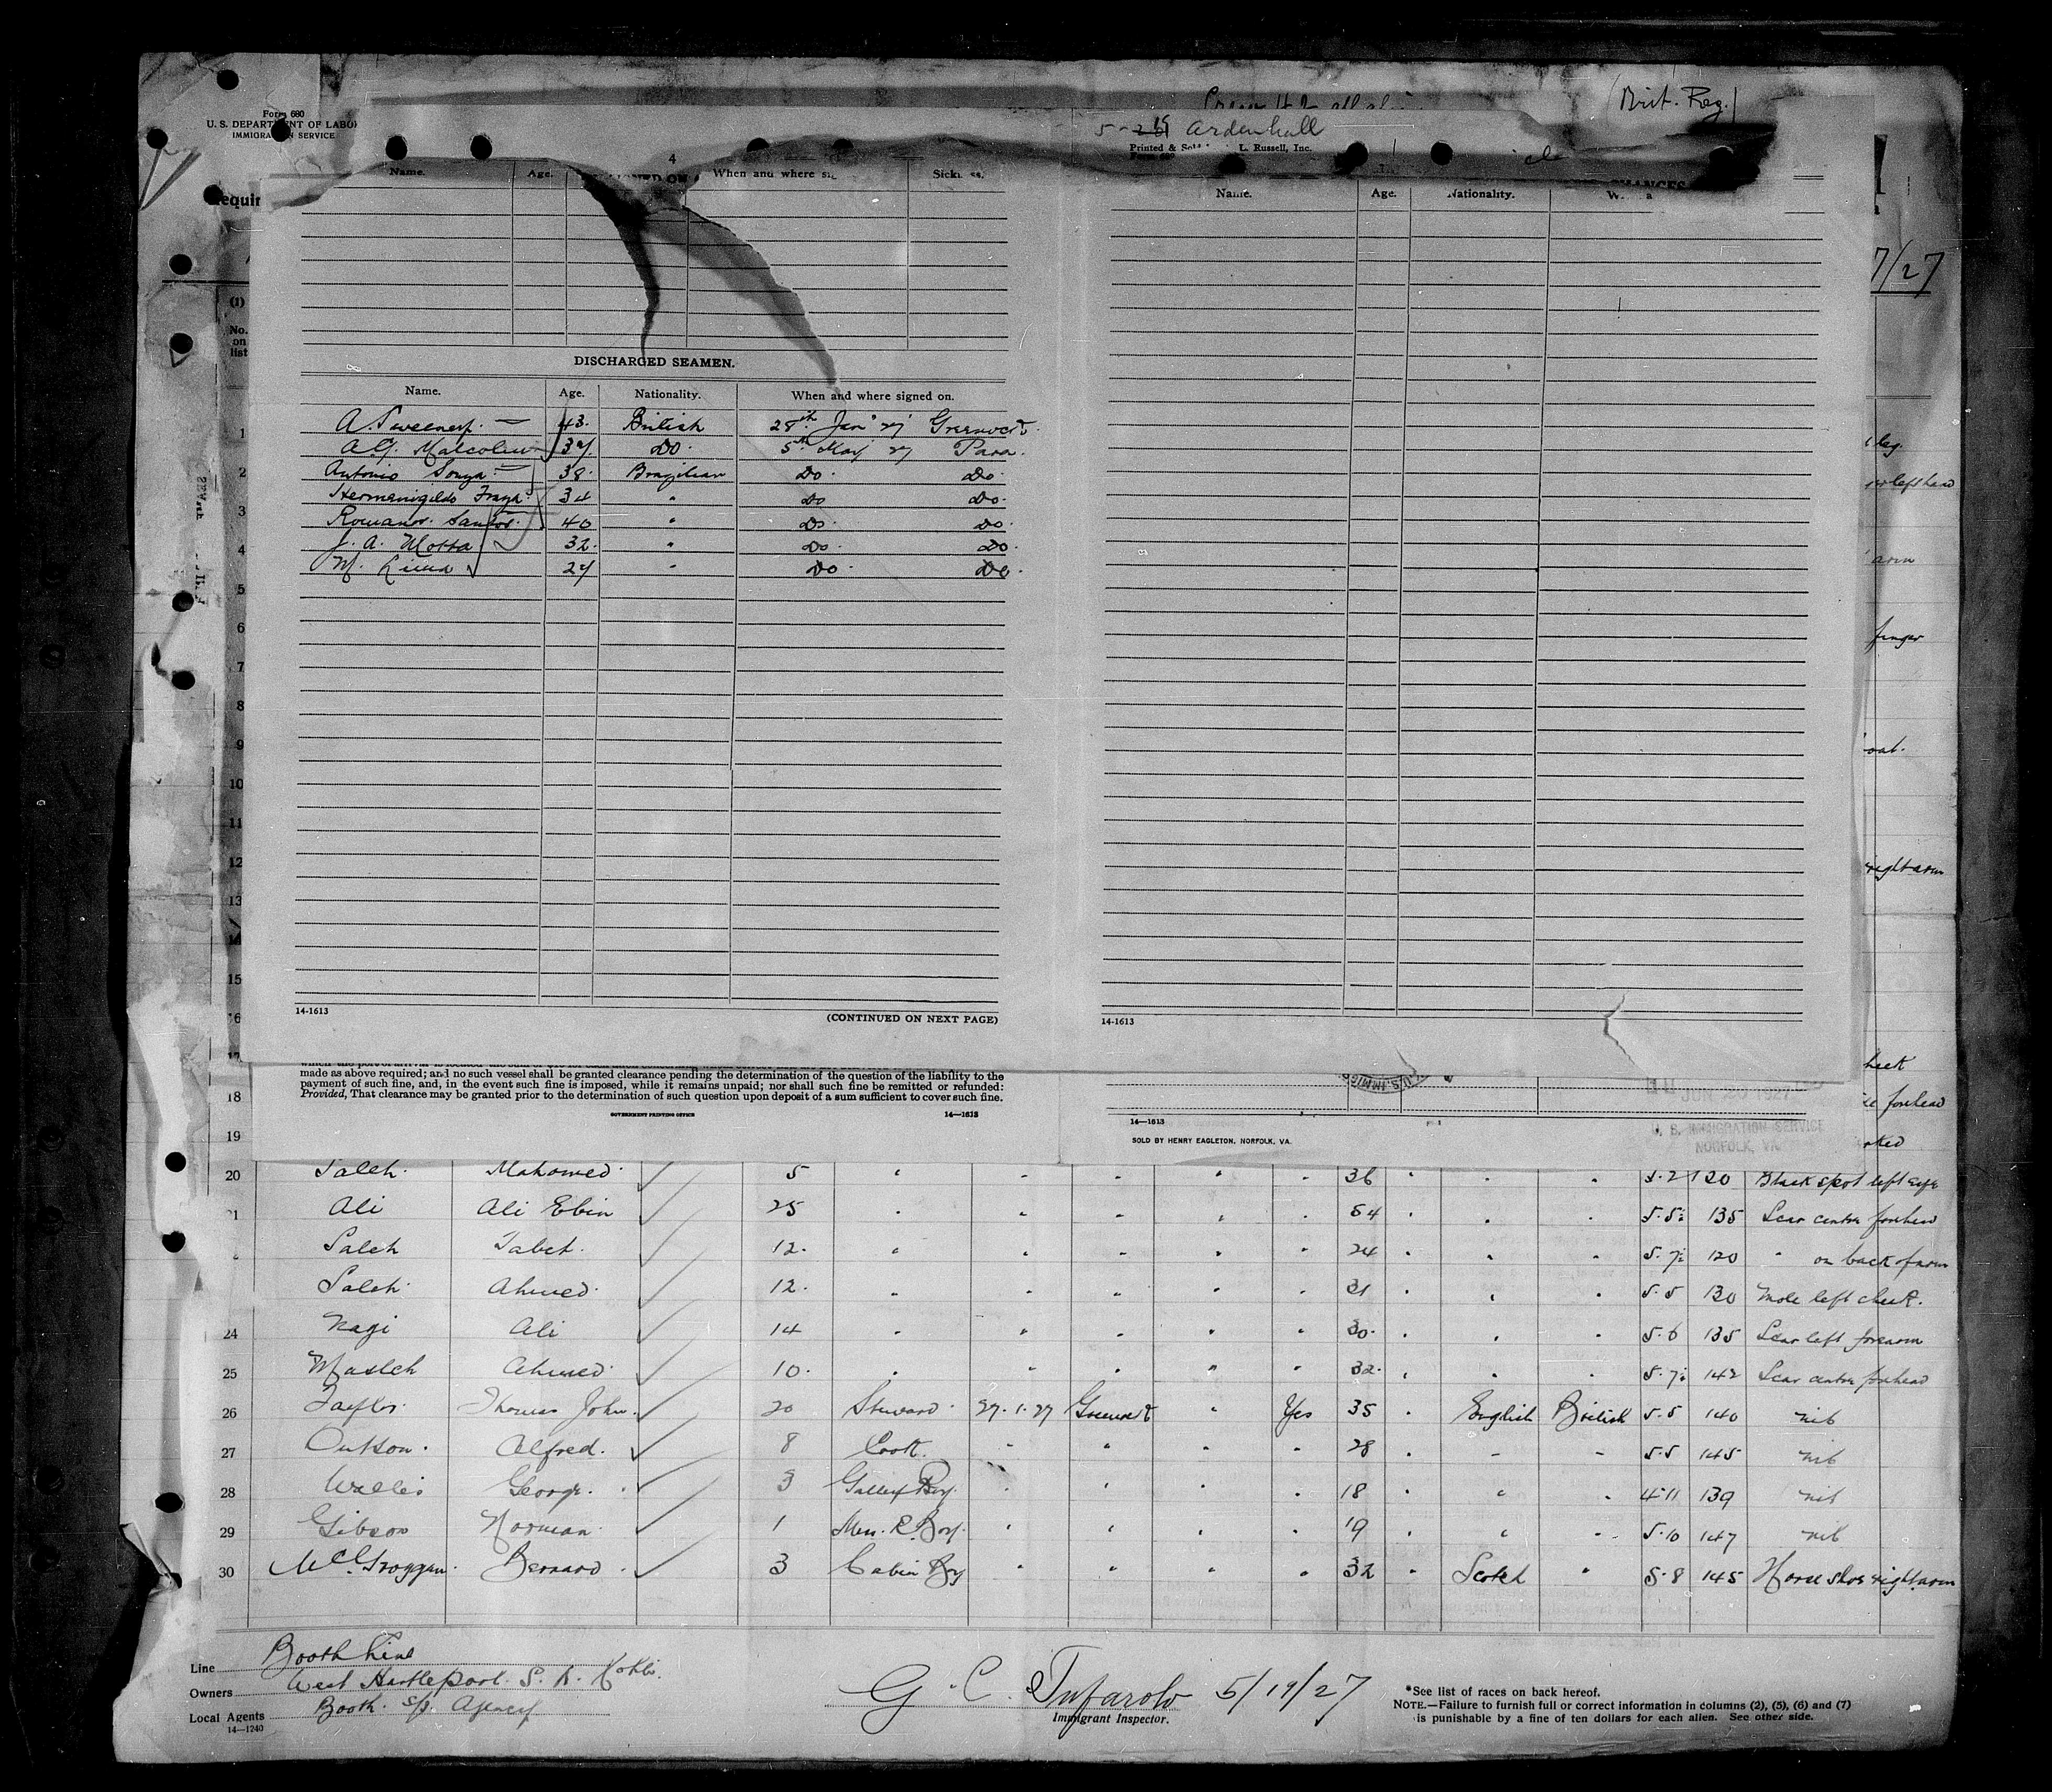 (Brit. Reg.)
Form 680
U. S. DEPARTMENT OF LABOR
IMMIGRATION SERVICE
Ardenhall
Printed & L. Russell, Inc.
Form 680
4
Requir
Name. Age. When and where Sickness.
Name. Age. Nationality.
CHANGES
7/27
(1)
No. on list
DISCHARGED SEAMEN.
Name. Age. Nationality. When and where signed on.
A Sweeney. 43. British 28th Jan' 27 Greenock
A.G. Malcolm 37 Do. 5th May 27 Para.
Antonio 38. Brazilian Do. Do.
Hermenigildo 34 " Do Do.
Santos. 40 " Do. Do.
J. A. Motta 32. " Do. Do.
M. 27 " Do. Do.
leg.
left hand
arm
finger
right arm
1
2
3
4
5
6
7
8
9
10
11
12
13
14
15
16
17
14-1613 (CONTINUED ON NEXT PAGE) 14-1613
made as above required; and no such vessel shall be granted clearance pending the determination of the question of the liability to the
payment of such fine, and, in the event such fine is imposed, while it remains unpaid; nor shall such fine be remitted or refunded:
Provided, That clearance may be granted prior to the determination of such question upon deposit of a sum sufficient to cover such fine.
GOVERNMENT PRINTING OFFICE 14—1613
14—1613
SOLD BY HENRY EAGLETON, NORFOLK, VA.
U.S. IMMIG
JUN 20 1927
U. S. IMMIGRATION SERVICE
NORFOLK, VA.
18 forehead
19
20 Saleh. Mahomed. 5 " " " " " 36 " " " 5.2 120 Black spot left eye
21 Ali Ali Ebin 25 " " " " " 54 " " " 5.5½ 135 Scar centre forehead
Saleh Tabet. 12. " " " " " 24 " " " 5.7½ 120 " on back of arm
Saleh Ahmed. 12. " " " " " 31 " " " 5.5 130 Mole left cheek.
24 Nagi Ali 14 " " " " " 30. " " " 5.6 135 Scar left forearm
25 Masleh Ahmed 10. " " " " " 32. " " " 5.7½ 142 Scar centre forehead
26 Taylor. Thomas John. 20 Steward. 27.1.27 Greenock " Yes 35 " English British 5.5 140 nil
27 Alfred. 8 Cook. " " " " 28 " " " 5.5 145 nil
28 George. 3 Galley Boy. " " " " 18 " " " 4.11 139 nil
29 Gibson Norman. 1 Mess. R. Boy. " " " " 19 " " " 5.10 147 nil
30 McGroggan. Bernard. 3 Cabin Boy " " " " 32 " Scotch " 5.8 145 Horse shoe right arm
Line Booth Line
Owners West Hartlepool S. N. Co Ltd.
Local Agents Booth. S/S. Agency
14—1240
G. C. Tufarolo 5/19/27
Immigrant Inspector.
*See list of races on back hereof.
NOTE.—Failure to furnish full or correct information in columns (2), (5), (6) and (7)
is punishable by a fine of ten dollars for each alien. See other side.